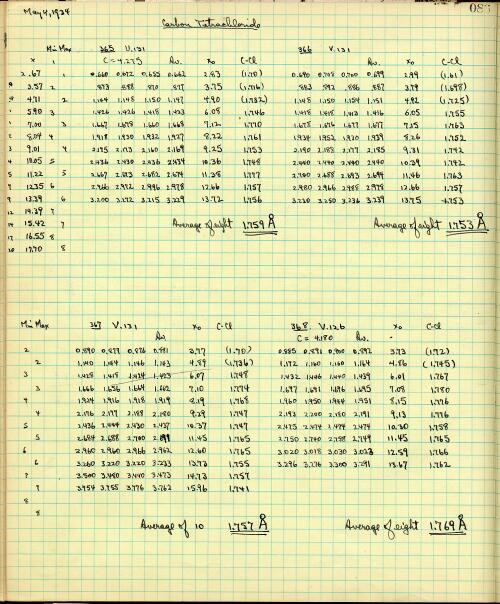 May 4, 1934
086
Carbon Tetrachloride
Min Max 365 V.131 366 V.131
x C = 4.275 Av. x₀ C-Cl Av. x₀ C-Cl
2.67 1 0.660 0.672 0.655 0.662 2.83 (1.70) 0.690 0.708 0.700 0.699 2.99 (1.61)
3.57 2 .873 .888 .870 .877 3.75 (1.716) .883 .892 .886 .887 3.79 (1.698)
4.71 2 1.144 1.148 1.150 1.147 4.90 (1.732) 1.148 1.150 1.154 1.151 4.92 (1.725)
5.90 3 1.426 1.426 1.418 1.423 6.08 1.746 1.418 1.418 1.413 1.416 6.05 1.755
7.00 3 1.667 1.675 1.660 1.668 7.12 1.770 1.678 1.676 1.677 1.677 7.25 1.763
8.04 4 1.918 1.930 1.932 1.927 8.22 1.761 1.934 1.952 1.930 1.939 8.26 1.752
9.01 4 2.175 2.173 2.160 2.169 9.25 1.753 2.190 2.188 2.177 2.185 9.31 1.742
10.05 5 2.436 2.430 2.436 2.434 10.36 1.748 2.440 2.440 2.440 2.440 10.39 1.742
11.22 5 2.667 2.673 2.682 2.674 11.38 1.777 2.700 2.688 2.693 2.694 11.46 1.763
12.35 6 2.966 2.972 2.996 2.978 12.66 1.757 2.980 2.966 2.988 2.978 12.66 1.757
13.39 6 3.200 3.272 3.215 3.229 13.72 1.756 3.230 3.250 3.236 3.239 13.75 1.753
14.39 7
15.42 7 Average of eight 1.759 Å Average of eight 1.753 Å
16.55 8
17.70 8
Min Max 367 V.131 x₀ C-Cl 368 V.126 x₀ C-Cl
Av. C = 4.180 Av.
2 0.890 0.877 0.876 0.881 3.77 (1.70) 0.885 0.891 0.900 0.892 3.73 (1.72)
2 1.140 1.144 1.146 1.143 4.89 (1.736) 1.172 1.160 1.160 1.164 4.86 (1.745)
3 1.428 1.418 1.424 1.423 6.07 1.748 1.432 1.446 1.440 1.439 6.01 1.767
3 1.666 1.656 1.664 1.662 7.10 1.774 1.697 1.691 1.696 1.695 7.08 1.780
4 1.924 1.916 1.918 1.919 8.19 1.768 1.960 1.950 1.944 1.951 8.15 1.776
4 2.176 2.177 2.188 2.180 9.29 1.747 2.193 2.200 2.180 2.191 9.13 1.776
5 2.436 2.444 2.430 2.437 10.37 1.747 2.475 2.474 2.474 2.474 10.30 1.758
5 2.684 2.688 2.700 2.699 11.45 1.765 2.750 2.740 2.758 2.749 11.45 1.765
6 2.960 2.960 2.966 2.962 12.60 1.765 3.020 3.018 3.030 3.023 12.59 1.766
6 3.260 3.220 3.220 3.233 13.73 1.755 3.296 3.276 3.300 3.291 13.67 1.762
7 3.500 3.480 3.440 3.473 14.73 1.757
7 3.754 3.755 3.776 3.762 15.96 1.741
8
8 Average of 10 1.757 Å Average of eight 1.769 Å